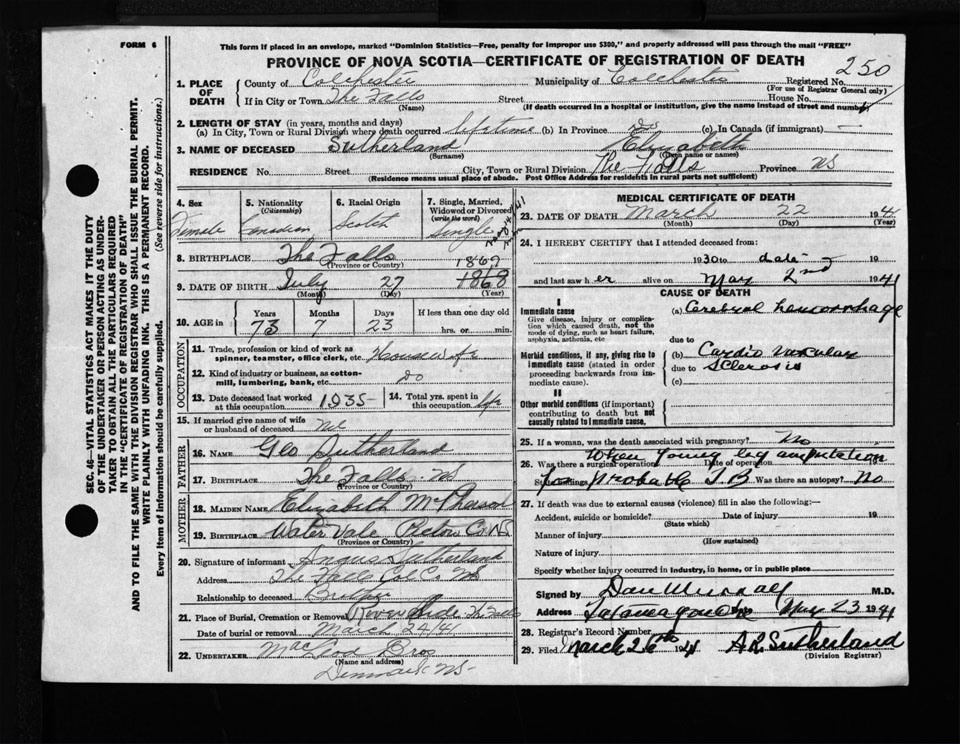 FORM 6
This form if placed in an envelope, marked "Dominion Statistics—Free, penalty for improper use $300," and properly addressed will pass through the mail "FREE"
PROVINCE OF NOVA SCOTIA—CERTIFICATE OF REGISTRATION OF DEATH
250
1. PLACE OF DEATH County of Colchester Municipality of Colchester Registered No.
(For use of Registrar General only)
If in City or Town The Falls Street House No.
(Name) (If death occurred in a hospital or institution, give the name instead of street and number)
2. LENGTH OF STAY (in years, months and days)
(a) In City, Town or Rural Division where death occurred lifetime (b) In Province Do (c) In Canada (if immigrant) —
3. NAME OF DECEASED Sutherland Elizabeth
(Surname) (Given name or names)
RESIDENCE No. Street City, Town or Rural Division The Falls Province NS
(Residence means usual place of abode. Post Office Address for residents in rural parts not sufficient)
4. Sex 5. Nationality (Citizenship) 6. Racial Origin 7. Single, Married, Widowed or Divorced (write the word)
Female Canadian Scotch Single
8. BIRTHPLACE The Falls
(Province or Country)
1867
9. DATE OF BIRTH July 27 1868
(Month) (Day) (Year)
10. AGE in Years Months Days If less than one day old
73 7 23 hrs. or min.
OCCUPATION
11. Trade, profession or kind of work as spinner, teamster, office clerk, etc. Housewife
12. Kind of industry or business, as cotton-mill, lumbering, bank, etc. Do
13. Date deceased last worked at this occupation 1935 14. Total yrs. spent in this occupation life
15. If married give name of wife or husband of deceased
FATHER
16. NAME Geo Sutherland
17. BIRTHPLACE The Falls NS
(Province or Country)
MOTHER
18. MAIDEN NAME Elizabeth
19. BIRTHPLACE Water Vale Pictou Co NS
(Province or Country)
20. Signature of informant Angus Sutherland
Address The Falls Col Co NS
Relationship to deceased Brother
21. Place of Burial, Cremation or Removal River Side The Falls
Date of burial or removal March 24/41
22. UNDERTAKER MacLeod Bros
(Name and address)
Denmark NS
MEDICAL CERTIFICATE OF DEATH
23. DATE OF DEATH March 22 1941
(Month) (Day) (Year)
24. I HEREBY CERTIFY that I attended deceased from:
1930 to date
and last saw her alive on May 2nd 1941
CAUSE OF DEATH
I
Immediate cause
Give disease, injury, or complication which caused death, not the mode of dying, such as heart failure, asphyxia, asthenia, etc
(a) Cerebral hemorrhage
due to
Morbid conditions, if any, giving rise to immediate cause (stated in order proceeding backwards from immediate cause).
(b) Cardio vascular
due to sclerosis
(c)
II
Other morbid conditions (if important) contributing to death but not causally related to immediate cause.
25. If a woman, was the death associated with pregnancy? No
When young leg amputation
26. Was there a surgical operation? Date of operation
for probable T.B Was there an autopsy? No
27. If death was due to external causes (violence) fill in also the following:—
Accident, suicide or homicide? Date of injury 19
(State which)
Manner of injury
(How sustained)
Nature of injury
Specify whether injury occurred in industry, in home, or in public place
Signed by Dan Murray M.D.
Address Tatamagouche May 23 1941
28. Registrar's Record Number
29. Filed March 26th 1941 A R Sutherland
(Division Registrar)
SEC. 46—VITAL STATISTICS ACT MAKES IT THE DUTY OF THE UNDERTAKER OR PERSON ACTING AS UNDERTAKER TO OBTAIN ALL THE PARTICULARS REQUIRED IN THE "CERTIFICATE OF REGISTRATION OF DEATH" AND TO FILE THE SAME WITH THE DIVISION REGISTRAR WHO SHALL ISSUE THE BURIAL PERMIT.
WRITE PLAINLY WITH UNFADING INK. THIS IS A PERMANENT RECORD.
Every item of information should be carefully supplied. (See reverse side for instructions.)